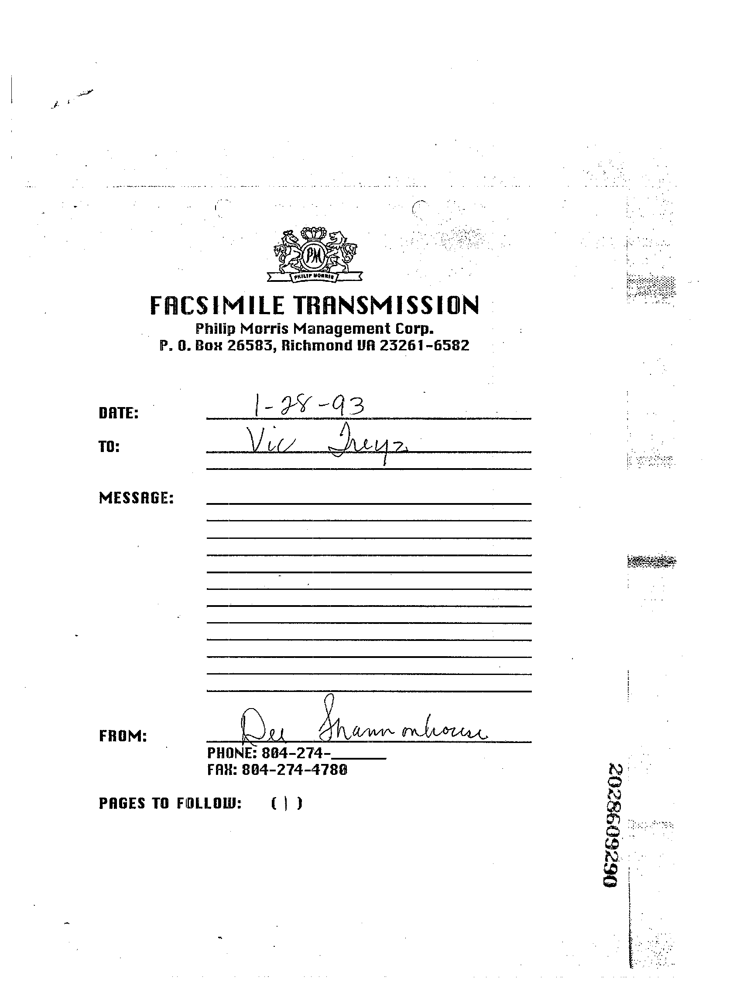 PM
PHILIP MORRIS
FACSIMILE TRANSMISSION
Philip Morris Management Corp.
P. O. Box 26583, Richmond VA 23261-6582
DATE: 1-28-93
TO: Vic Treyz
MESSAGE:
FROM: Dee Shannonhouse
PHONE: 804-274-
FAX: 804-274-4780
PAGES TO FOLLOW: ( | )
2028609290